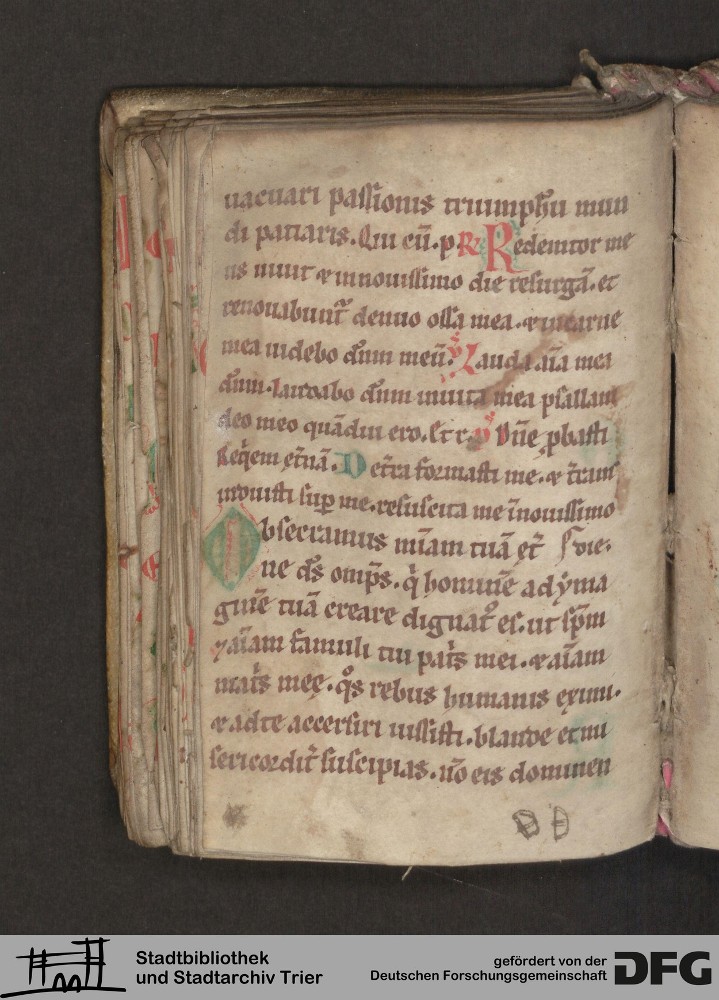 uacuari passionis triumphū mun
di patiaris. Qui cū. p. R Redemtor me
us uiuit & in nouissimo die resurgā. et
renouabunt̄ denuo ossa mea. & in carne
mea uidebo dn̄m meū. V Lauda aīa mea
dn̄m. Laudabo dn̄m in uita mea psallam
deo meo quādiu ero. Et r. V Dn̄e pbasti
Reqͥem et̄nā. Dext̄ra formasti me. & t̄rans
induisti sup me. resuscita me ī nouissimo
Obsecramus mīam tuā et̄ die.
ne ds̄ omp̄s. qͥ hominē ad ymā
ginē tuā creare dignatꝰ es. ut sp̄m
& aīam famuli tui patͥs mei. & aīam
matͥs meę. qͦs rebus humanis eximi.
& ad te accersiri iussisti. blande et mi
sericordit̄ suscipias. nō eis dominen
Stadtbibliothek
und Stadtarchiv Trier
gefördert von der
Deutschen Forschungsgemeinschaft
DFG